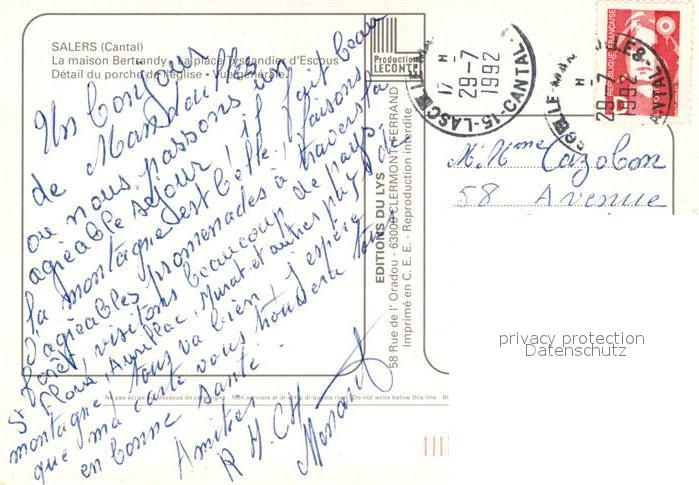 SALERS (Cantal)
La maison Bertrandy - La place Tyssandier d'Escous
Détail du porche de l'église - Vue générale.
Un bonjour
de Mandailles
ou nous passons un
agréable séjour ! il fait beau
la montagne est belle ! faisons
d'agréables promenades à travers la
forêt, visitons beaucoup de pays
St Flour, Aurillac, Murat et autres plus de
montagne, tous va bien, j'espère
que ma carte vous trouvera tous
en bonne santé.
Amitiés
R M. CH
Production
LECONTE
EDITIONS DU LYS
58 Rue de l'Oradou - 63000 CLERMONT-FERRAND
Imprimé en C. E. E. - Reproduction interdite
17 H
29-7
1992
15-LASCELLE
CANTAL
29-7
1992
CANTAL
REPUBLIQUE FRANÇAISE
M. Mme Cazobon
58 Avenue
privacy protection
Datenschutz
Ne pas écrire au-dessous de cette ligne
Do not write below this line